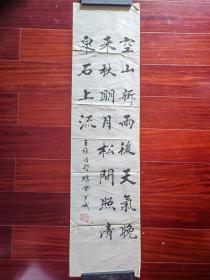 空山新雨後天氣晚
来秋明月松間照清
泉石上流
王維诗